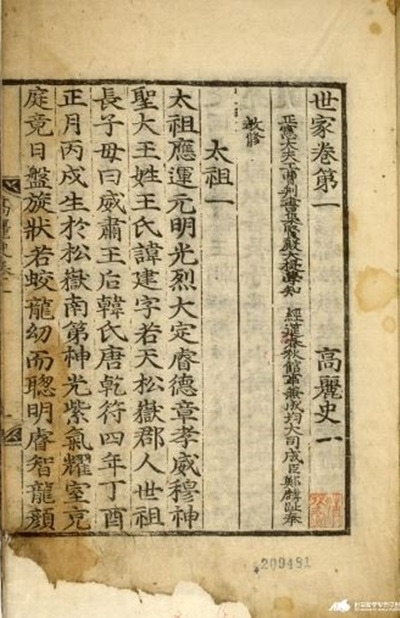 世家卷第一 高麗史一
正憲大夫工曹判書集賢殿大提學知 經筵春秋館事兼成均大司成臣鄭麟趾奉
敎修
太祖一
太祖應運元明光烈大定睿德章孝威穆神
聖大王姓王氏諱建字若天松嶽郡人世祖
長子母曰威肅王后韓氏唐乾符四年丁酉
正月丙戌生於松嶽南第神光紫氣耀室充
庭竟日盤旋狀若蛟龍幼而聰明睿智龍顔
高麗史卷一
209481